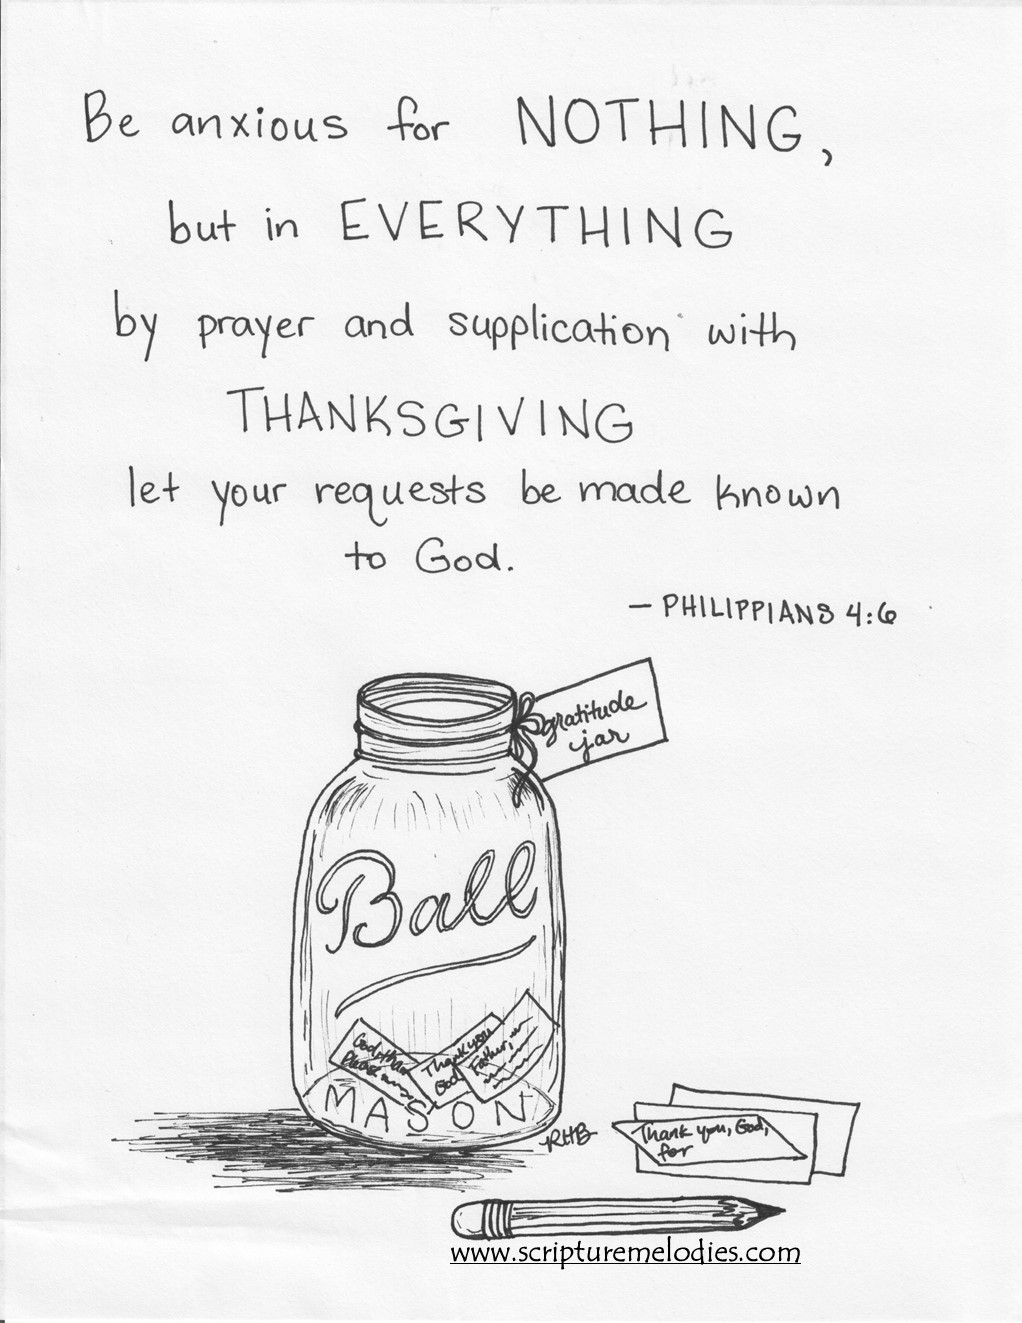 Be anxious for NOTHING,
but in EVERYTHING
by prayer and supplication with
THANKSGIVING
let your requests be made known
to God.
— PHILIPPIANS 4:6
gratitude
jar
Ball
God,
Please
Thank you
God
Father,
MASON
RHB
Thank you, God,
for
www.scripturemelodies.com